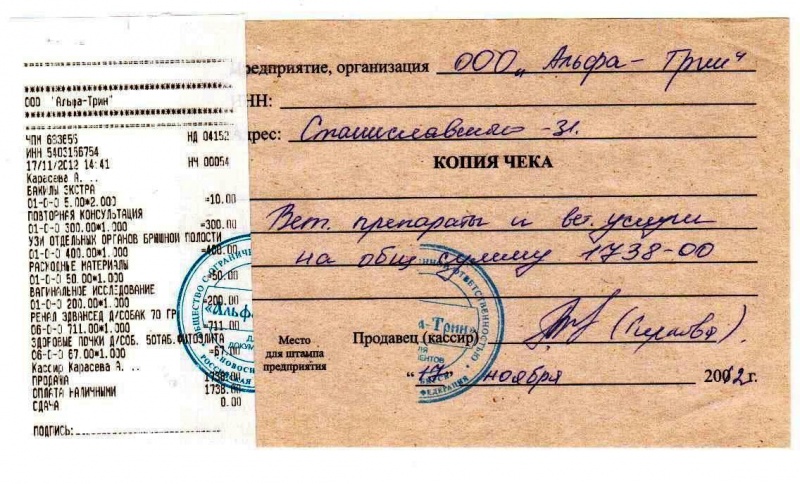 ООО "Альфа-Трин"
ЧПМ 683656 НД 04152
ИНН 5403156754
17/11/2012 14:41 НЧ 00054
Карасева А. ..
БАХИЛЫ ЭКСТРА
01-0-0 5.00*2.000 =10.00
ПОВТОРНАЯ КОНСУЛЬТАЦИЯ
01-0-0 300.00*1.000 =300.00
УЗИ ОТДЕЛЬНЫХ ОРГАНОВ БРЮШНОЙ ПОЛОСТИ
01-0-0 400.00*1.000 =400.00
РАСХОДНЫЕ МАТЕРИАЛЫ
01-0-0 50.00*1.000 =50.00
ВАГИНАЛЬНОЕ ИССЛЕДОВАНИЕ
01-0-0 200.00*1.000 =200.00
РЕНАЛ ЭДВАНСЕД Д/СОБАК 70 ГР
06-0-0 711.00*1.000 =711.00
ЗДОРОВЫЕ ПОЧКИ Д/СОБ. 50ТАБ.ФИТОЭЛИТА
06-0-0 67.00*1.000 =67.00
Кассир Карасева А. ..
ПРОДАЖА 1738.00
ОПЛАТА НАЛИЧНЫМИ 1738.00
СДАЧА 0.00
ПОДПИСЬ:
редприятие, организация ООО „Альфа-Трин"
ИНН:
Адрес: Станиславского-31.
КОПИЯ ЧЕКА
Вет. препараты и вет. услуги
на общ. сумму 1738-00
Продавец (кассир)
Место
для штампа
предприятия
"17" ноября 2012г.
ОБЩЕСТВО С ОГРАНИЧЕННОЙ ОТВЕТСТВЕННОСТЬЮ
«Альфа-Трин»